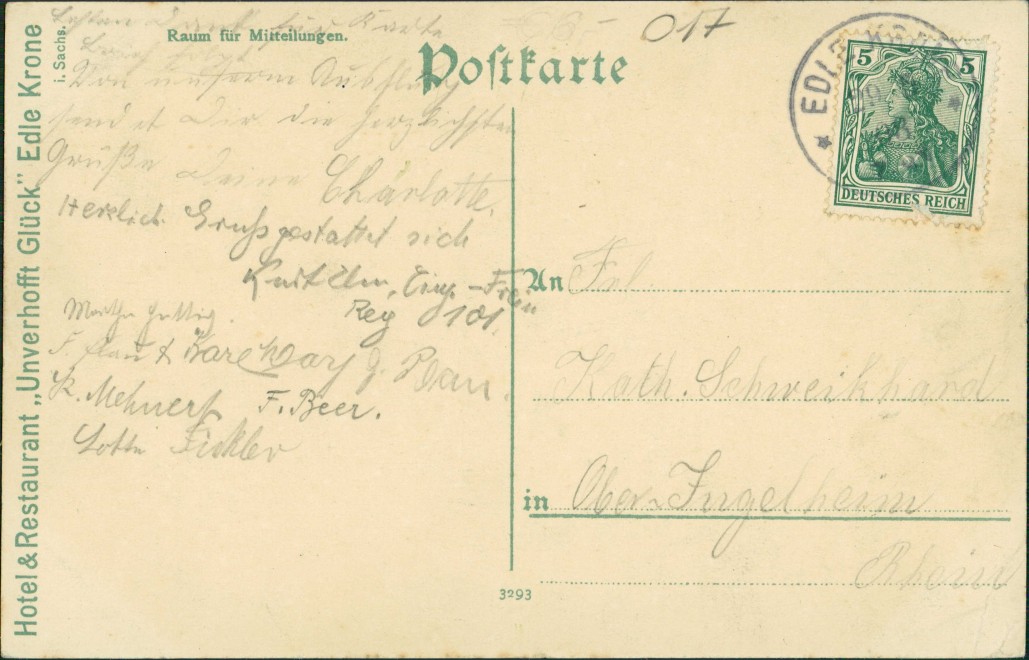 Hotel & Restaurant „Unverhofft Glück" Edle Krone
i. Sachs.
Raum für Mitteilungen.
Postkarte
017
Besten Dank für Karte
Brief folgt
Von unserm Ausflug
sendet Dir die herzlichsten
Grüße Deine Charlotte.
Herzlich. Gruß gestattet sich
Kurt
Reg 101.
Martha
K. Mehnert F. Beer.
Lotte Fickler
EDLE KRONE
5 5
DEUTSCHES REICH
An Frl.
Kath. Schweikhard
in Ober-Ingelheim
Rhein
3293